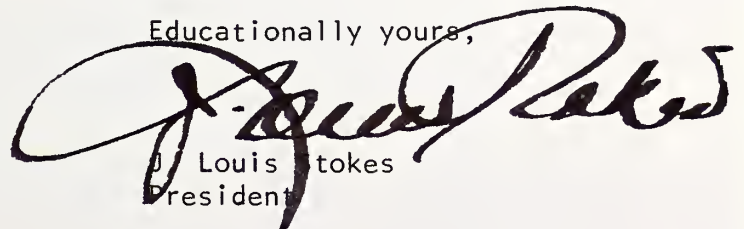 Educationally yours,
J. Louis Stokes
J. Louis Stokes
President